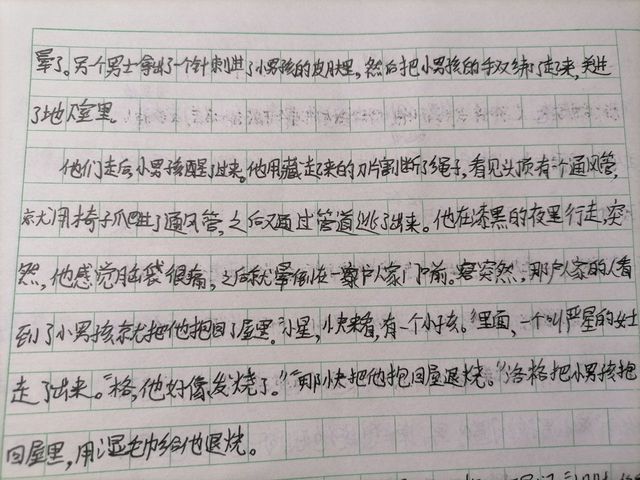 晕了。另个男士拿出了一个针刺进了小男孩的皮肤里,然后把小男孩的手双绑了起来,关进
了地下室里。
他们走后,小男孩醒了过来。他用藏起来的刀片割断了绳子,看见头顶有一个通风管,
就用椅子爪进了通风管,之后又通过管道逃了出来。他在漆黑的夜里行走,突
然,他感觉脑袋很痛,之后就晕倒在一家户人家门前。突然,那户人家的人看
到了小男孩就把他抱回了屋里。“小星,快来看,有一个小孩。”里面,一个叫严星的女士
走了出来。“格,他好像发烧了。”“那快把他抱回屋退烧。”洛格把小男孩抱
回屋里,用湿毛巾给他退烧。